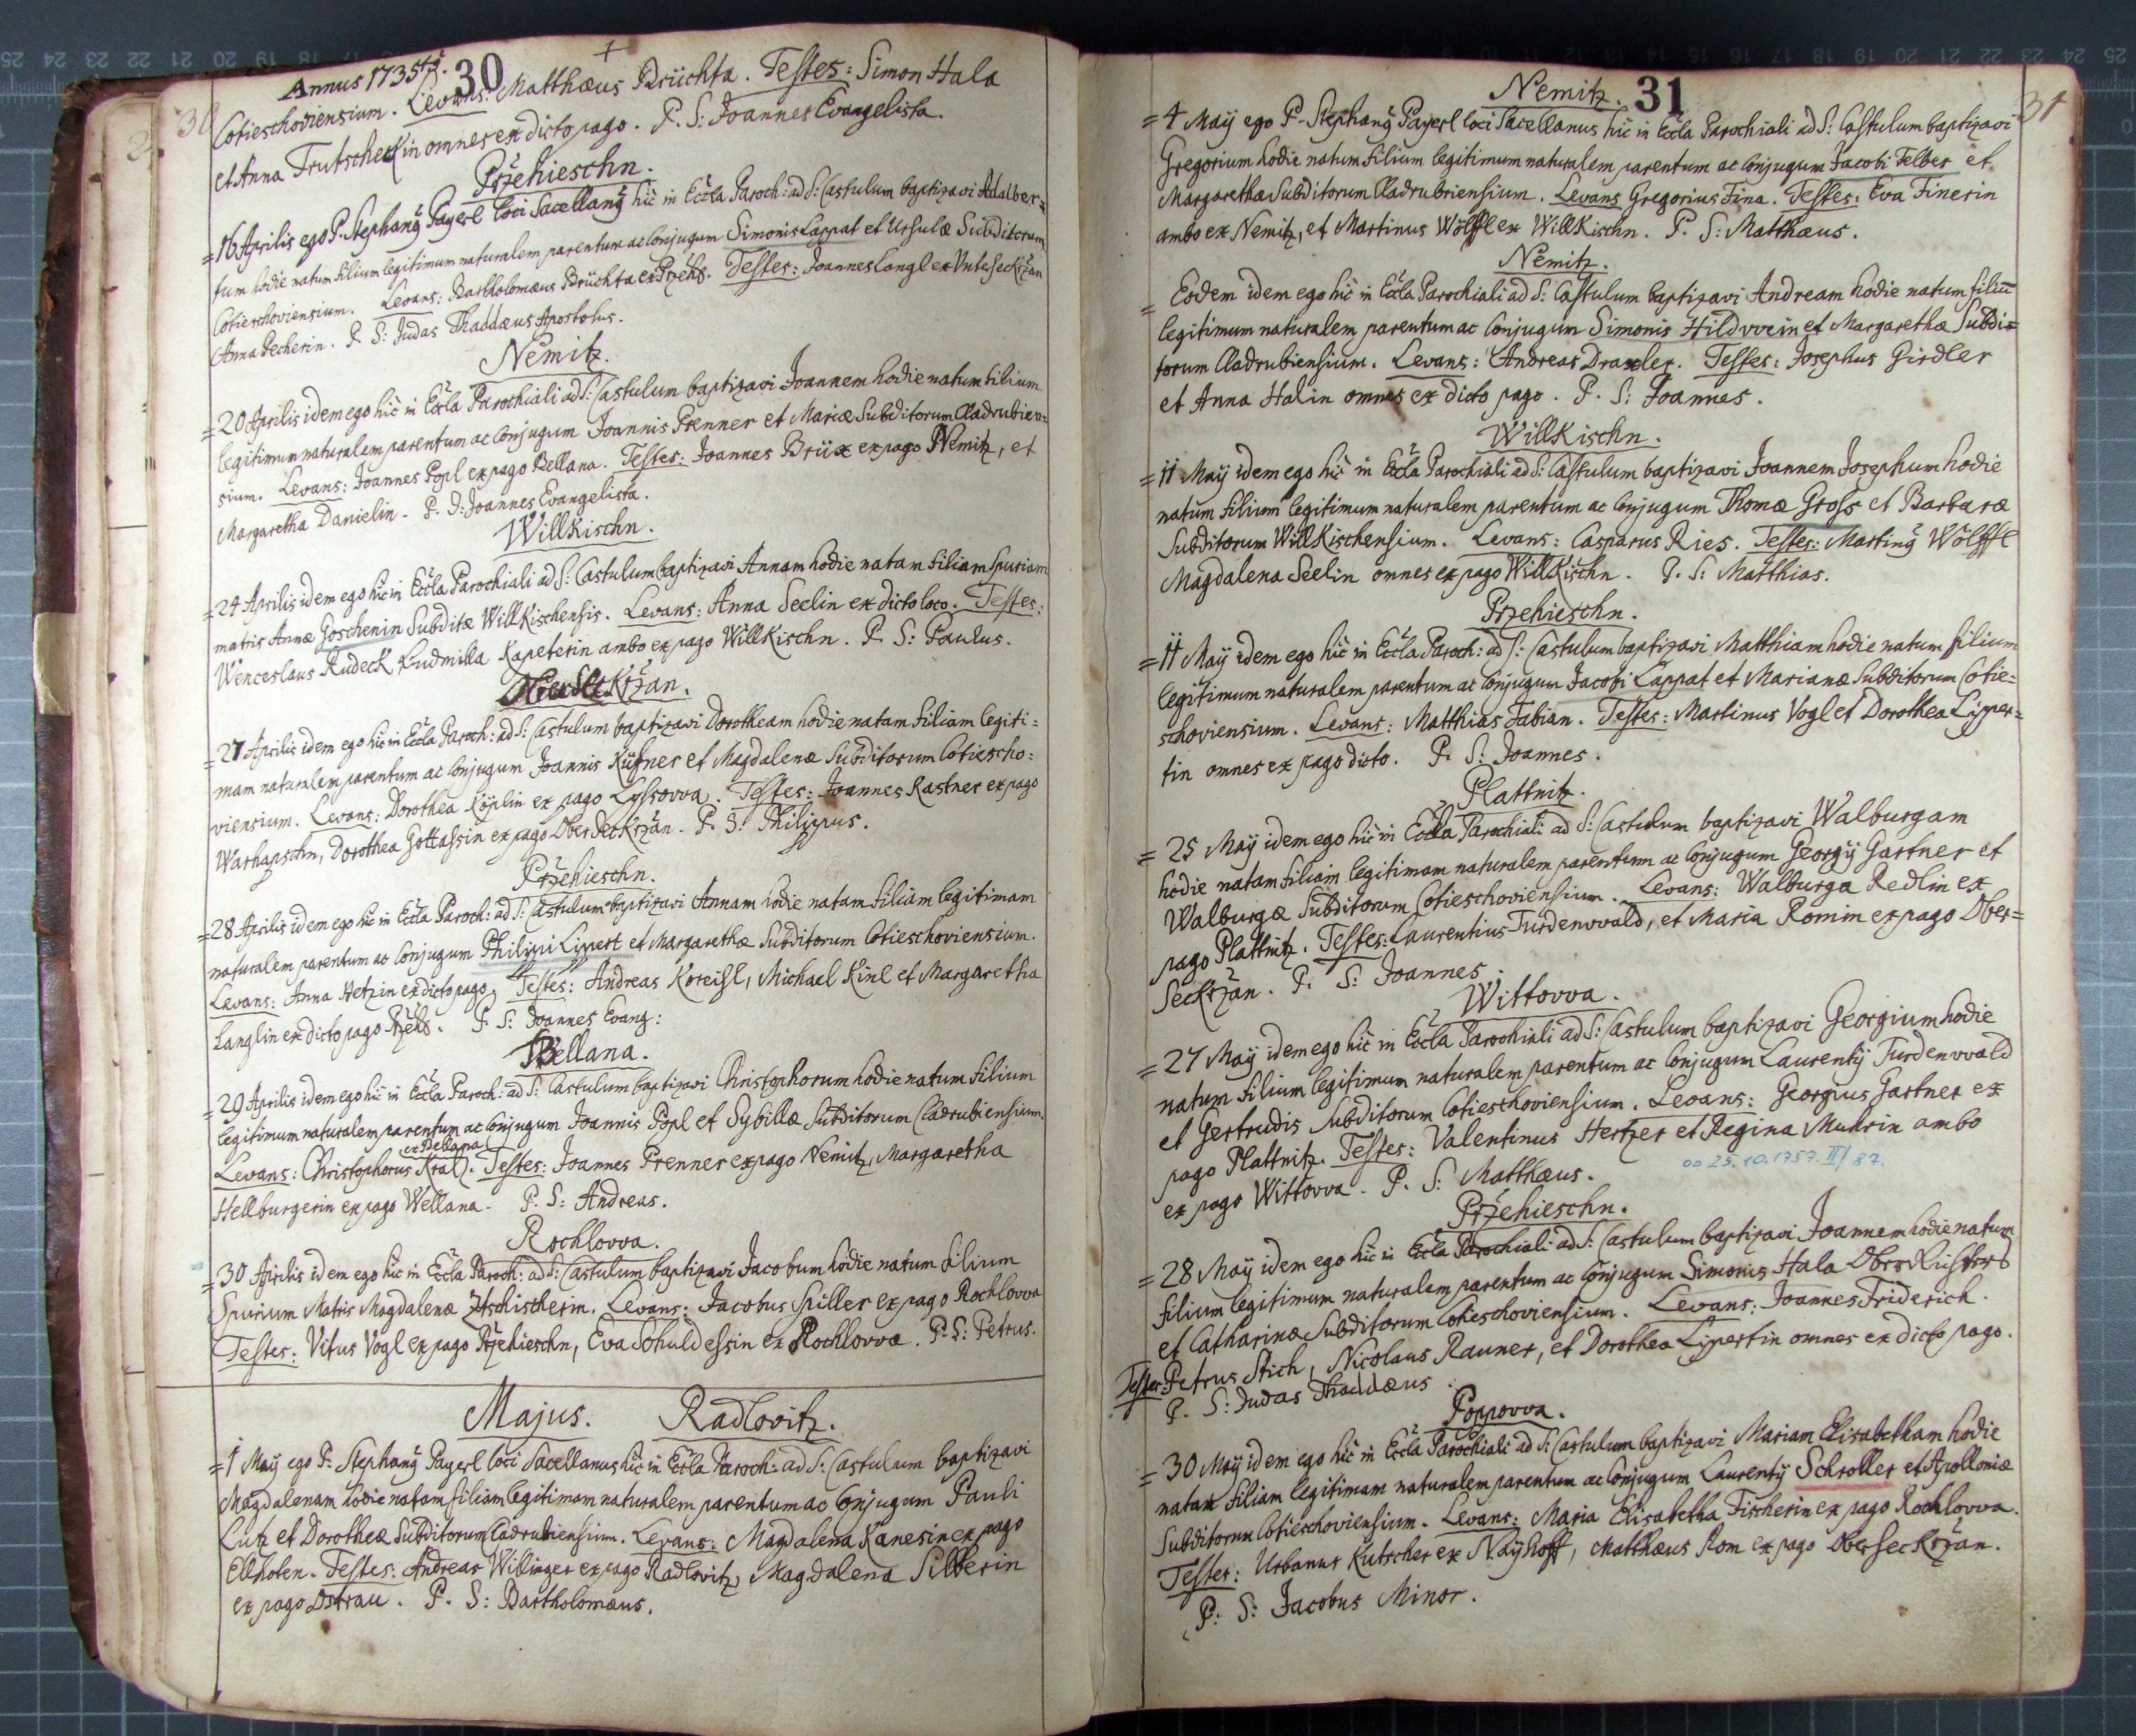 Annus 1735ti.
30
Cotieschoviensium. Levans: Matthæus Brüchta. Testes: Simon Hala
et Anna Trutscherlin omnes ex dicto pago. P. S: Joannes Evangelista.
Przehieschn.
=16 Aprilis ego P. Stephanus Payerl loci Sacellanus hic in Eccla Paroch: ad S: Castulum baptizavi Adalber=
tum hodie natum filium legitimum naturalem parentum ac Conjugum Simonis Lappat et Ursulæ Subditorum
Cotieschoviensium. Levans: Bartholomæus Brüchta ex Przehs. Testes: Joannes Longl ex Unteseckrzan
Anna Pecherin. P. S: Judas Thaddæus Apostolus.
Nemitz.
=20 Aprilis idem ego hic in Eccla Parochiali ad S: Castulum baptizavi Joannem hodie natum filium
legitimum naturalem parentum ac Conjugum Joannis Prenner et Mariæ Subditorum Cladrubien=
sium. Levans: Joannes Popl ex pago Bellana. Testes: Joannes Brüx ex pago Nemitz, et
Margaretha Danielin. P. S: Joannes Evangelista.
Willkischn.
=24 Aprilis idem ego hic in Eccla Parochiali ad S: Castulum baptizavi Annam hodie natam filiam Spuriam
matris Annæ Goschenin Subditæ Willkischensis. Levans: Anna Seelin ex dicto loco. Testes:
Wenceslaus Rudeck, Ludmilla Kapeterin ambo ex pago Willkischn. P. S: Paulus.
OberSeckrzan.
=27 Aprilis idem ego hic in Eccla Paroch: ad S: Castulum baptizavi Dorotheam hodie natam filiam legiti=
mam naturalem parentum ac Conjugum Joannis Küfner et Magdalenæ Subditorum Cotiescho=
viensium. Levans: Dorothea Köplin ex pago Lyssovva. Testes: Joannes Kastner ex pago
Warhapschn, Dorothea Gottassin ex pago OberSeckrzan. P. S: Philippus.
Przehieschn.
=28 Aprilis idem ego hic in Eccla Paroch: ad S: Castulum baptizavi Annam hodie natam filiam legitimam
naturalem parentum ac Conjugum Philippi Lippert et Margarethæ Subditorum Cotieschoviensium.
Levans: Anna Hetzin ex dicto pago. Testes: Andreas Koreisl, Michael Kinl et Margaretha
Langlin ex dicto pago Przehs. P. S: Joannes Evang:
Bellana.
=29 Aprilis idem ego hic in Eccla Paroch: ad S: Castulum baptizavi Christophorum hodie natum filium
legitimum naturalem parentum ac Conjugum Joannis Popl et Sybillæ Subditorum Cladrubiensium.
ex Bellana
Levans: Christophorus Kral. Testes: Joannes Prenner ex pago Nemitz, Margaretha
Hellburgerin ex pago Wellana. P. S: Andreas.
Rochlovva.
=30 Aprilis idem ego hic in Eccla Paroch: ad S: Castulum baptizavi Jacobum hodie natum filium
Spurium Matris Magdalenæ Ztschischerin. Levans: Jacobus Spiller ex pago Rochlovva
Testes: Vitus Vogl ex pago Przehieschn, Eva Schuldessin ex Rochlovva. P. S: Petrus.
Majus. Radlovitz.
=1 May ego P: Stephanus Payerl loci Sacellanus hic in Eccla Paroch: ad S: Castulum baptizavi
Magdalenam hodie natam filiam legitimam naturalem parentum ac Conjugum Pauli
Lutz et Dorotheæ Subditorum Cladrubiensium. Levans: Magdalena Kanesin ex pago
Ellhoten. Testes: Andreas Willinger ex pago Radlovitz, Magdalena Silberin
ex pago Ostrau. P. S: Bartholomæus.
Nemitz. 31
31
=4 May ego P. Stephanus Payerl loci Sacellanus hic in Eccla Parochiali ad S: Castulum baptizavi
Gregorium hodie natum filium legitimum naturalem parentum ac Conjugum Jacobi Felber et
Margarethæ Subditorum Cladrubriensium. Levans Gregorius Fina. Testes: Eva Finerin
ambo ex Nemitz, et Martinus Wölffl ex Willkischn. P. S: Matthæus.
Nemitz.
= Eodem idem ego hic in Eccla Parochiali ad S: Castulum baptizavi Andream hodie natum filiū
legitimum naturalem parentum ac Conjugum Simonis Hildvvein et Margarethæ Subdi=
torum Cladrubiensium. Levans: Andreas Draxler. Testes: Josephus Girdler
et Anna Halin omnes ex dicto pago. P. S: Joannes.
Willkischn.
=11 May idem ego hic in Eccla Parochiali ad S: Castulum baptizavi Joannem Josephum hodie
natum filium legitimum naturalem parentum ac Conjugum Thomæ Gross et Barbaræ
Subditorum Willkischensium. Levans: Casparus Ries. Testes: Martinus Wölffl
Magdalena Seelin omnes ex pago Willkischn. P. S: Matthias.
Przehieschn.
=11 May idem ego hic in Eccla Paroch: ad S: Castulum baptizavi Matthiam hodie natum filium
legitimum naturalem parentum ac Conjugum Jacobi Lappat et Marianæ Subditorum Cotie=
schoviensium. Levans: Matthias Fabian. Testes: Martinus Vogl et Dorothea Lipper=
tin omnes ex pago dicto. P. S: Joannes.
Plattnitz.
=25 May idem ego hic in Eccla Parochiali ad S: Castulum baptizavi Walburgam
hodie natam filiam legitimam naturalem parentum ac Conjugum Georgij Gartner et
Walburgæ Subditorum Cotieschoviensium. Levans: Walburga Redlin ex
pago Plattnitz. Testes: Laurentius Furdenvvald, et Maria Romin ex pago Ober=
Seckrzan. P. S: Joannes.
Wittovva.
=27 May idem ego hic in Eccla Parochiali ad S: Castulum baptizavi Georgium hodie
natum filium legitimum naturalem parentum ac Conjugum Laurentij Furdenvvald
et Gertrudis Subditorum Cotieschoviensium. Levans: Georgius Gartner ex
pago Plattnitz. Testes: Valentinus Hertzer et Regina Muhrin ambo
ex pago Wittovva. P. S: Matthæus.
oo 25.10.1757. II/87.
Przehieschn.
=28 May idem ego hic in Eccla Parochiali ad S: Castulum baptizavi Joannem hodie natum
filium legitimum naturalem parentum ac Conjugum Simonis Hala
et Catharinæ Subditorum Cotieschoviensium. Levans: Joannes Friderich.
Testes: Petrus Stich, Nicolaus Rauner, et Dorothea Lipertin omnes ex dicto pago.
P. S: Judas Thaddæus.
Poppovva.
=30 May idem ego hic in Eccla Parochiali ad S: Castulum baptizavi Mariam Elisabetham hodie
natam filiam legitimam naturalem parentum ac Conjugum Laurentij Schroller et Apolloniæ
Subditorum Cotieschoviensium. Levans: Maria Elisabetha Fischerin ex pago Rochlovva.
Testes: Urbanus Kutscher ex Nayhoff, Matthæus Rom ex pago OberSeckrzan.
P: S: Jacobus Minor.